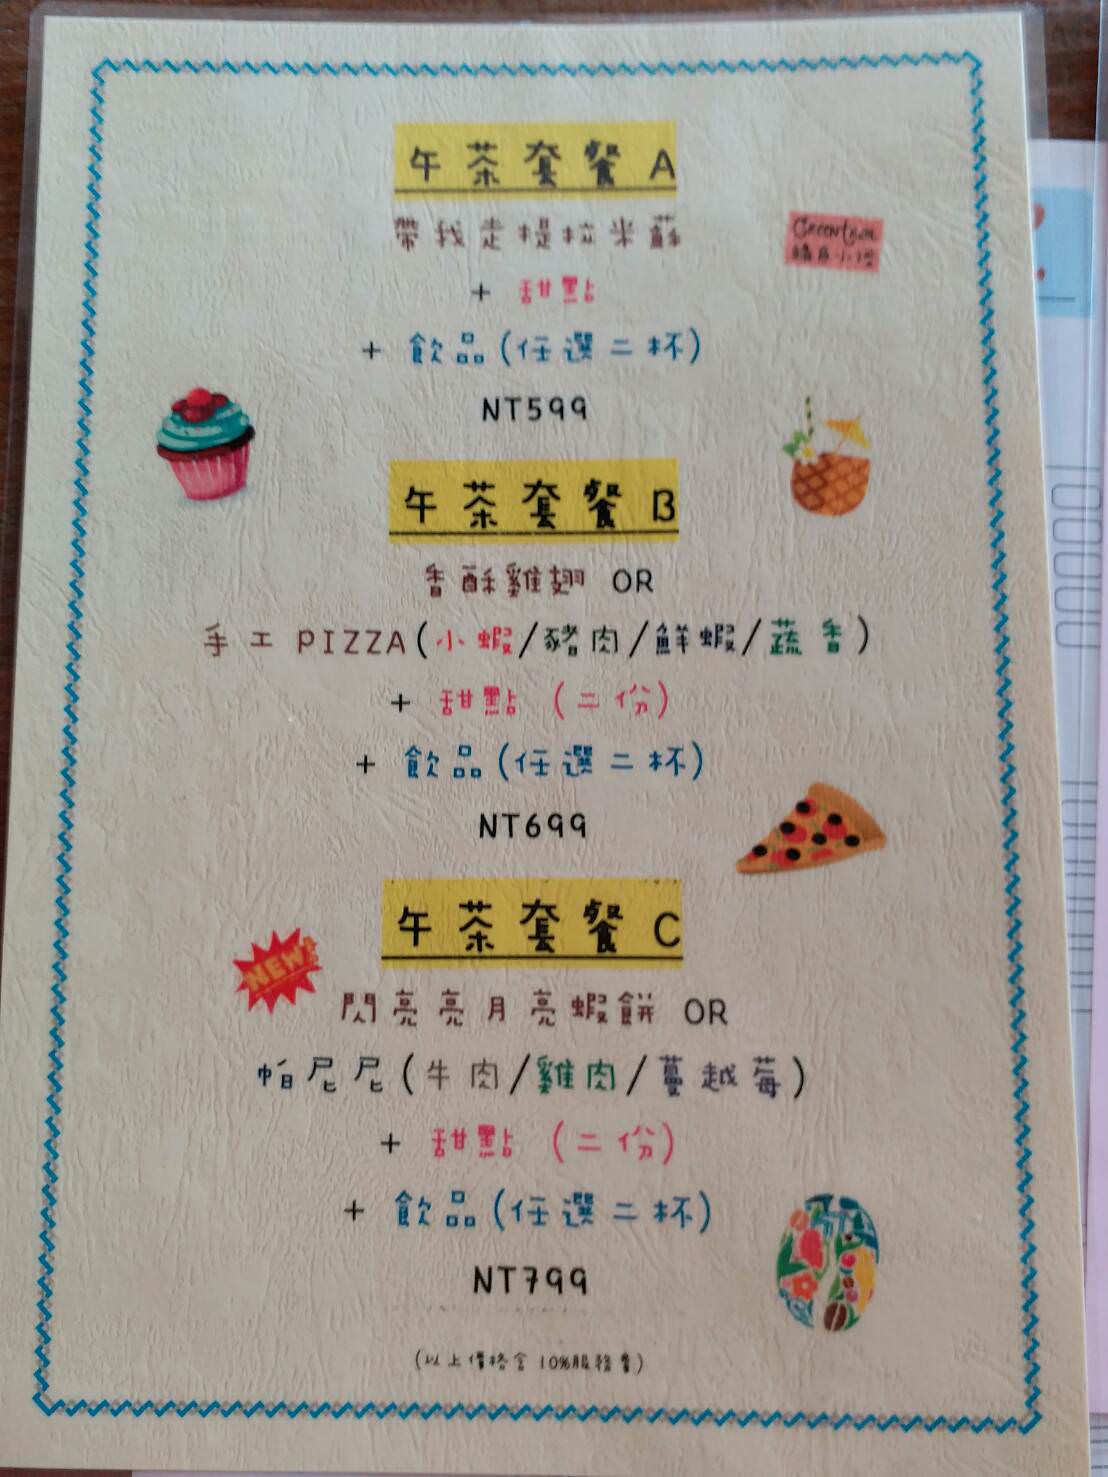 午茶套餐 A
帶我走提拉米蘇
+ 甜點
+ 飲品(任選二杯)
NT599
午茶套餐 B
香酥雞翅 OR
手工 PIZZA(小蝦/豬肉/鮮蝦/蔬香)
+ 甜點 (二份)
+ 飲品(任選二杯)
NT699
午茶套餐 C
NEW
閃亮亮月亮蝦餅 OR
帕尼尼(牛肉/雞肉/蔓越莓)
+ 甜點 (二份)
+ 飲品(任選二杯)
NT799
(以上價格含 10%服務費)